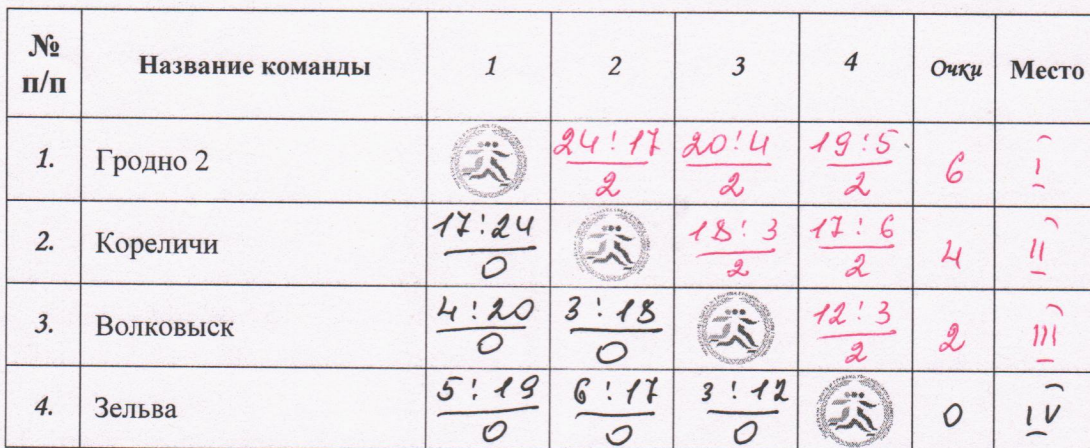 № п/п Название команды 1 2 3 4 Очки Место
1. Гродно 2 24:17 20:4 19:5 6 I
2 2 2
2. Кореличи 17:24 18:3 17:6 4 II
0 2 2
3. Волковыск 4:20 3:18 12:3 2 III
0 0 2
4. Зельва 5:19 6:17 3:12 0 IV
0 0 0